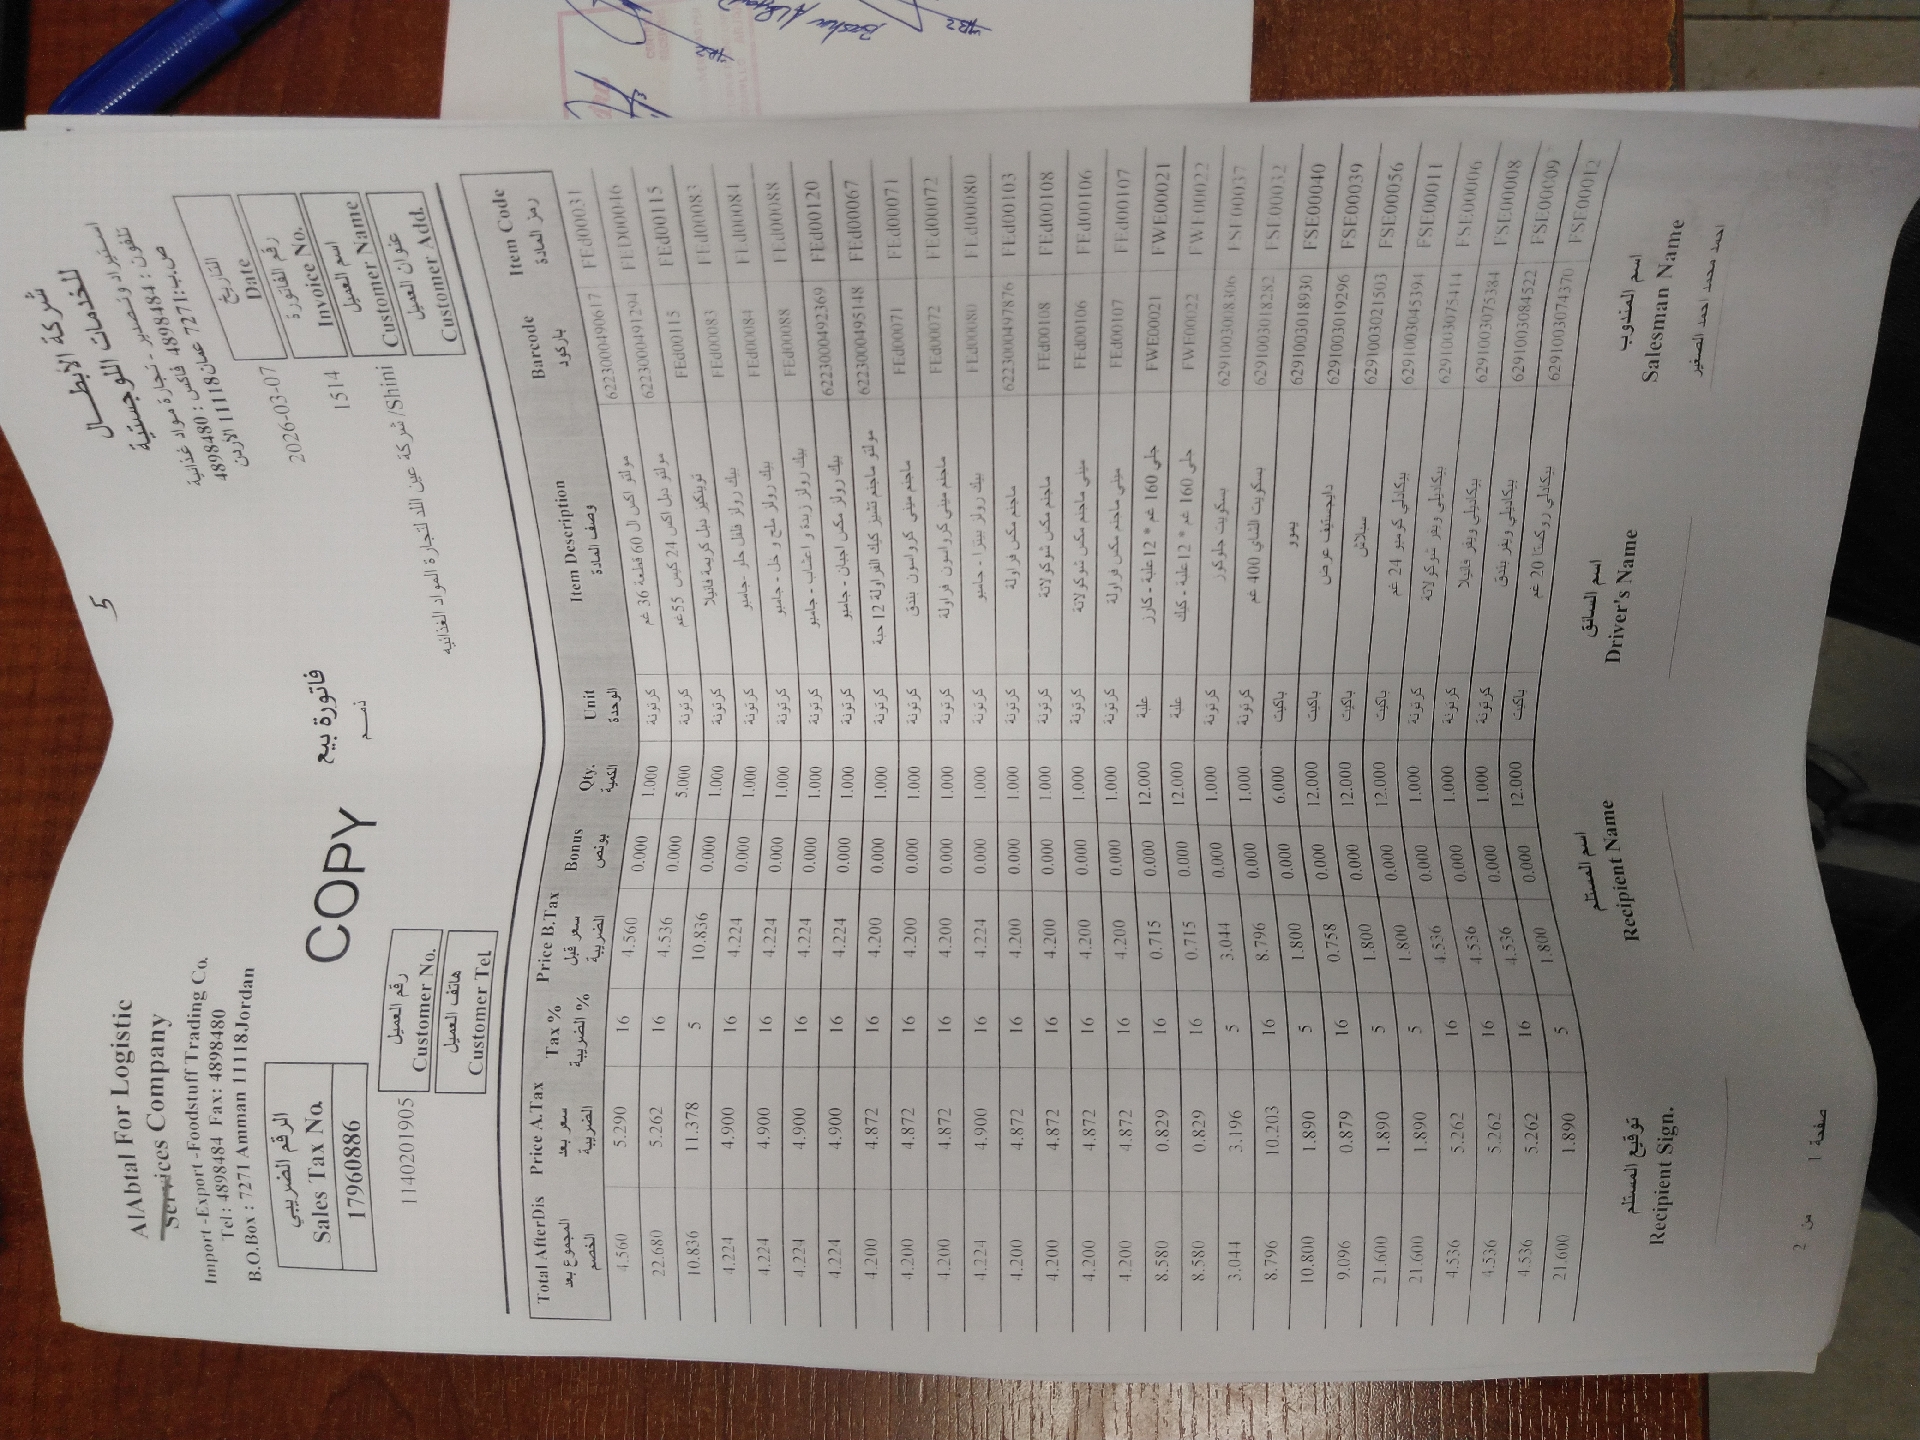 AlAbtal For Logistic
Services Company
Import -Export -Foodstuff Trading Co.
Tel: 4898484 Fax: 4898480
B.O.Box : 7271 Amman 11118Jordan
5
شركة الأبطـــال
للخدمات اللوجستية
استيراد وتصدير - تجارة مواد غذائية
تلفون : 4898484 فاكس : 4898480
ص.ب:7271 عمان11118 الأردن
الرقم الضريبي
Sales Tax No.
17960886
COPY
فاتورة بيع
ذمـــم
2026-03-07
التاريخ
Date
1514
رقم الفاتورة
Invoice No.
1140201905
رقم العميل
Customer No.
شركة عين اللد لتجارة المواد الغذائيه /Shini
اسم العميل
Customer Name
هاتف العميل
Customer Tel
عنوان العميل
Customer Add.
Total AfterDis Price A.Tax Tax % Price B.Tax Bonus Qty. Unit Item Description Barcode Item Code
المجموع بعد الخصم سعر بعد الضريبة الضريبة % سعر قبل الضريبة بونص الكمية الوحدة وصف المادة باركود رمز المادة
4.560 5.290 16 4.560 0.000 1.000 كرتونة مولتو اكس ال 60 قطعة 36 غم 6223000490617 FEd00031
22.680 5.262 16 4.536 0.000 5.000 كرتونة مولتو دبل اكس 24 كيس 55غم 6223000491294 FED00046
10.836 11.378 5 10.836 0.000 1.000 كرتونة توينكيز دبل كريمة فانيلا FEd00115 FEd00115
4.224 4.900 16 4.224 0.000 1.000 كرتونة بيك رولز فلفل حلو - جامبو FEd00083 FEd00083
4.224 4.900 16 4.224 0.000 1.000 كرتونة بيك رولز ملح و خل - جامبو FEd00084 FEd00084
4.224 4.900 16 4.224 0.000 1.000 كرتونة بيك رولز زبدة و اعشاب - جامبو FEd00088 FEd00088
4.224 4.900 16 4.224 0.000 1.000 كرتونة بيك رولز مكس اجبان - جامبو 6223000492369 FEd00120
4.200 4.872 16 4.200 0.000 1.000 كرتونة مولتو ماجنم تشيز كيك الفراولة 12 حبة 6223000495148 FEd00067
4.200 4.872 16 4.200 0.000 1.000 كرتونة ماجنم ميني كرواسون بندق FEd00071 FEd00071
4.200 4.872 16 4.200 0.000 1.000 كرتونة ماجنم ميني كرواسون فراولة FEd00072 FEd00072
4.224 4.900 16 4.224 0.000 1.000 كرتونة بيك رولز بيتزا - جامبو FEd00080 FEd00080
4.200 4.872 16 4.200 0.000 1.000 كرتونة ماجنم مكس فراولة 6223000497876 FEd00103
4.200 4.872 16 4.200 0.000 1.000 كرتونة ماجنم مكس شوكولاتة FEd00108 FEd00108
4.200 4.872 16 4.200 0.000 1.000 كرتونة ميني ماجنم مكس شوكولاتة FEd00106 FEd00106
4.200 4.872 16 4.200 0.000 1.000 كرتونة ميني ماجنم مكس فراولة FEd00107 FEd00107
8.580 0.829 16 0.715 0.000 12.000 علبة جلي 160 غم * 12 علبة - كارز FWE00021 FWE00021
8.580 0.829 16 0.715 0.000 12.000 علبة جلي 160 غم * 12 علبة - كيك FWE00022 FWE00022
3.044 3.196 5 3.044 0.000 1.000 كرتونة بسكويت جلوكوز 6291003008306 FSE00037
8.796 10.203 16 8.796 0.000 1.000 كرتونة بسكويت الشاي 400 غم 6291003018282 FSE00032
10.800 1.890 5 1.800 0.000 6.000 باكيت 6291003018930 FSE00040
9.096 0.879 16 0.758 0.000 12.000 باكيت دايجستيف عرض 6291003019296 FSE00039
21.600 1.890 5 1.800 0.000 12.000 باكيت 6291003021503 FSE00056
21.600 1.890 5 1.800 0.000 12.000 باكيت بيكاديلي كرميو 24 غم 6291003045394 FSE00011
4.536 5.262 16 4.536 0.000 1.000 كرتونة بيكاديلي ويفر شوكولاتة 6291003075414 FSE00006
4.536 5.262 16 4.536 0.000 1.000 كرتونة بيكاديلي ويفر فانيلا 6291003075384 FSE00008
4.536 5.262 16 4.536 0.000 1.000 كرتونة بيكاديلي ويفر بندق 6291003084522 FSE00009
21.600 1.890 5 1.800 0.000 12.000 باكيت بيكاديلي روكستا 20 غم 6291003074370 FSE00012
توقيع المستلم اسم المستلم اسم السائق اسم المندوب
Recipient Sign. Recipient Name Driver's Name Salesman Name
احمد محمد احمد الصغير
صفحة 1 من 2